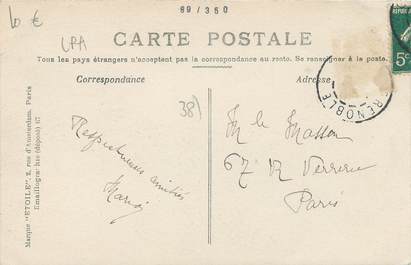 69/350
10 €
CPA
CARTE POSTALE
Tous les pays étrangers n'acceptent pas la correspondance au recto. Se renseigner à la poste.
Correspondance
Adresse
5c
GRENOBLE
38
Respectueuses amitiés
M le Masson
67 R Verrerie
Paris
Marque "ETOILE" 2, rue d'Amsterdam, Paris
Emaillographie (déposé) 67